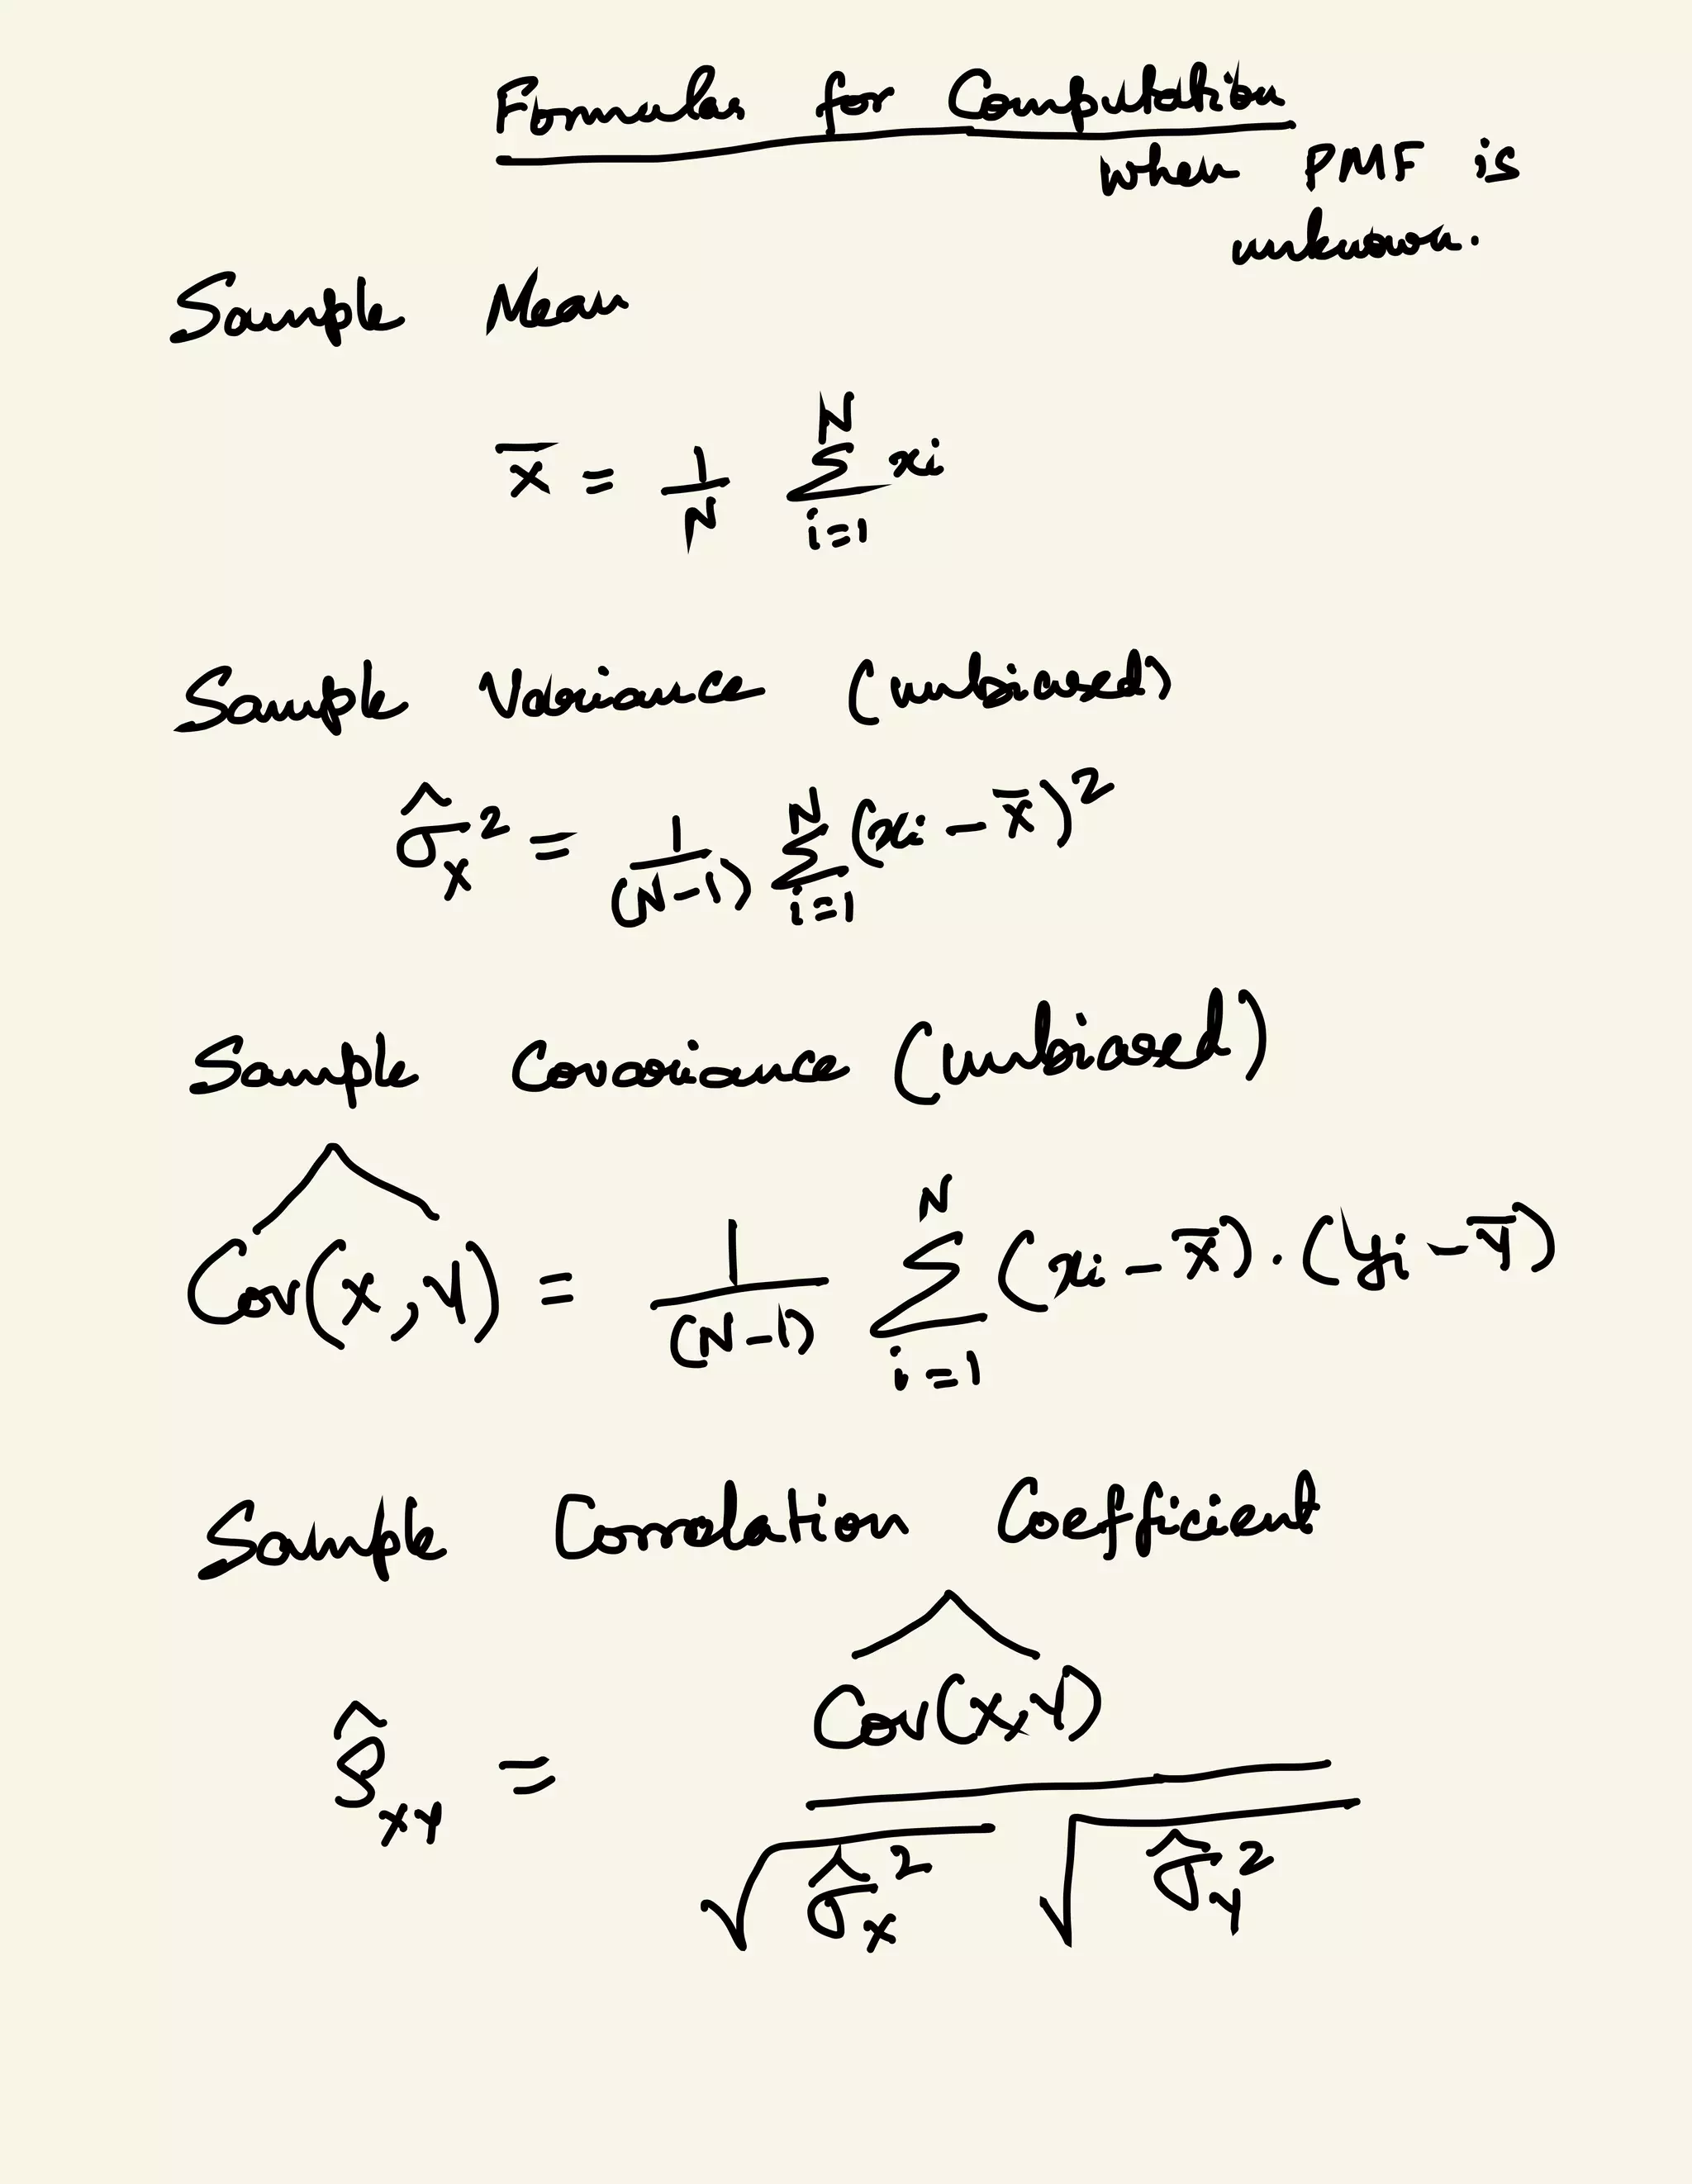 Formulas for Computation
when PMF is
unknown.
Sample Mean
x̄ = 1/N ∑_{i=1}^{N} xi
Sample Variance (unbiased)
σ̂_X² = 1/(N-1) ∑_{i=1}^{N} (xi - x̄)²
Sample Covariance (unbiased)
Cov(X,Y)^ = 1/(N-1) ∑_{i=1}^{N} (xi - X̄) · (yi - Ȳ)
Sample Correlation Coefficient
ρ̂_XY = Cov(X,Y)^ / √(σ̂_X²) √(σ̂_Y²)